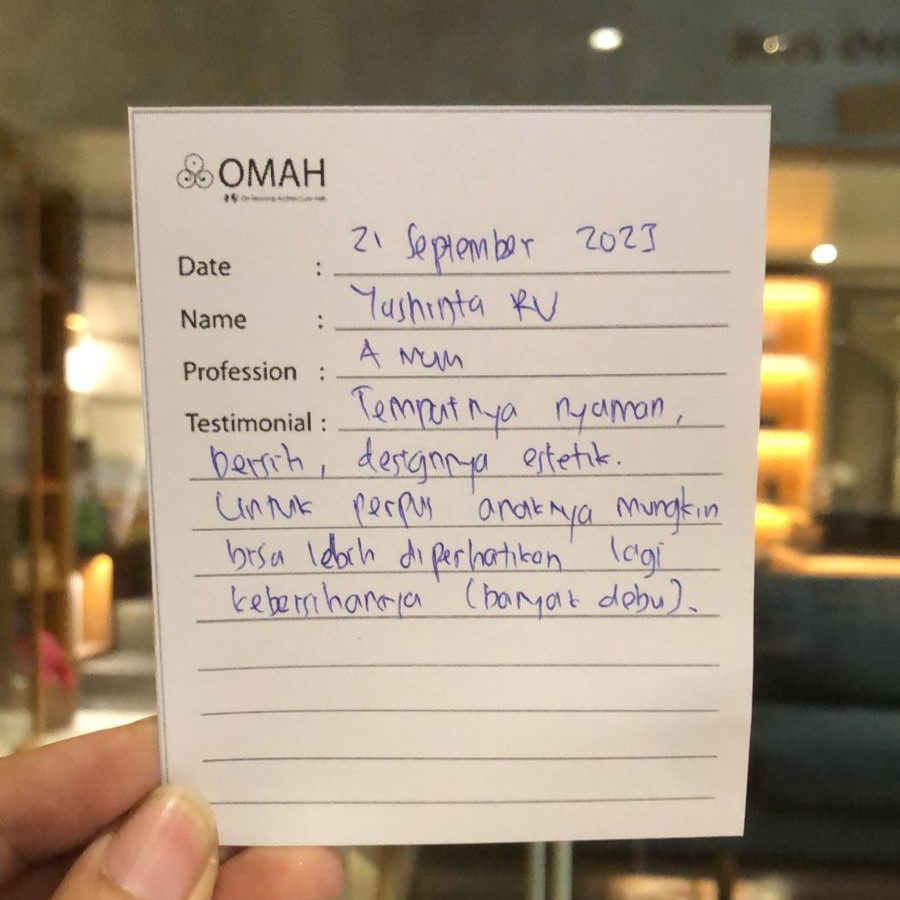 OMAH
Date : 21 September 2023
Name : Yashinta RV
Profession : A Mum
Testimonial : Tempatnya nyaman,
bersih, designnya estetik.
Untuk perpus anaknya mungkin
bisa lebih diperhatikan lagi
kebersihannya (banyak debu).